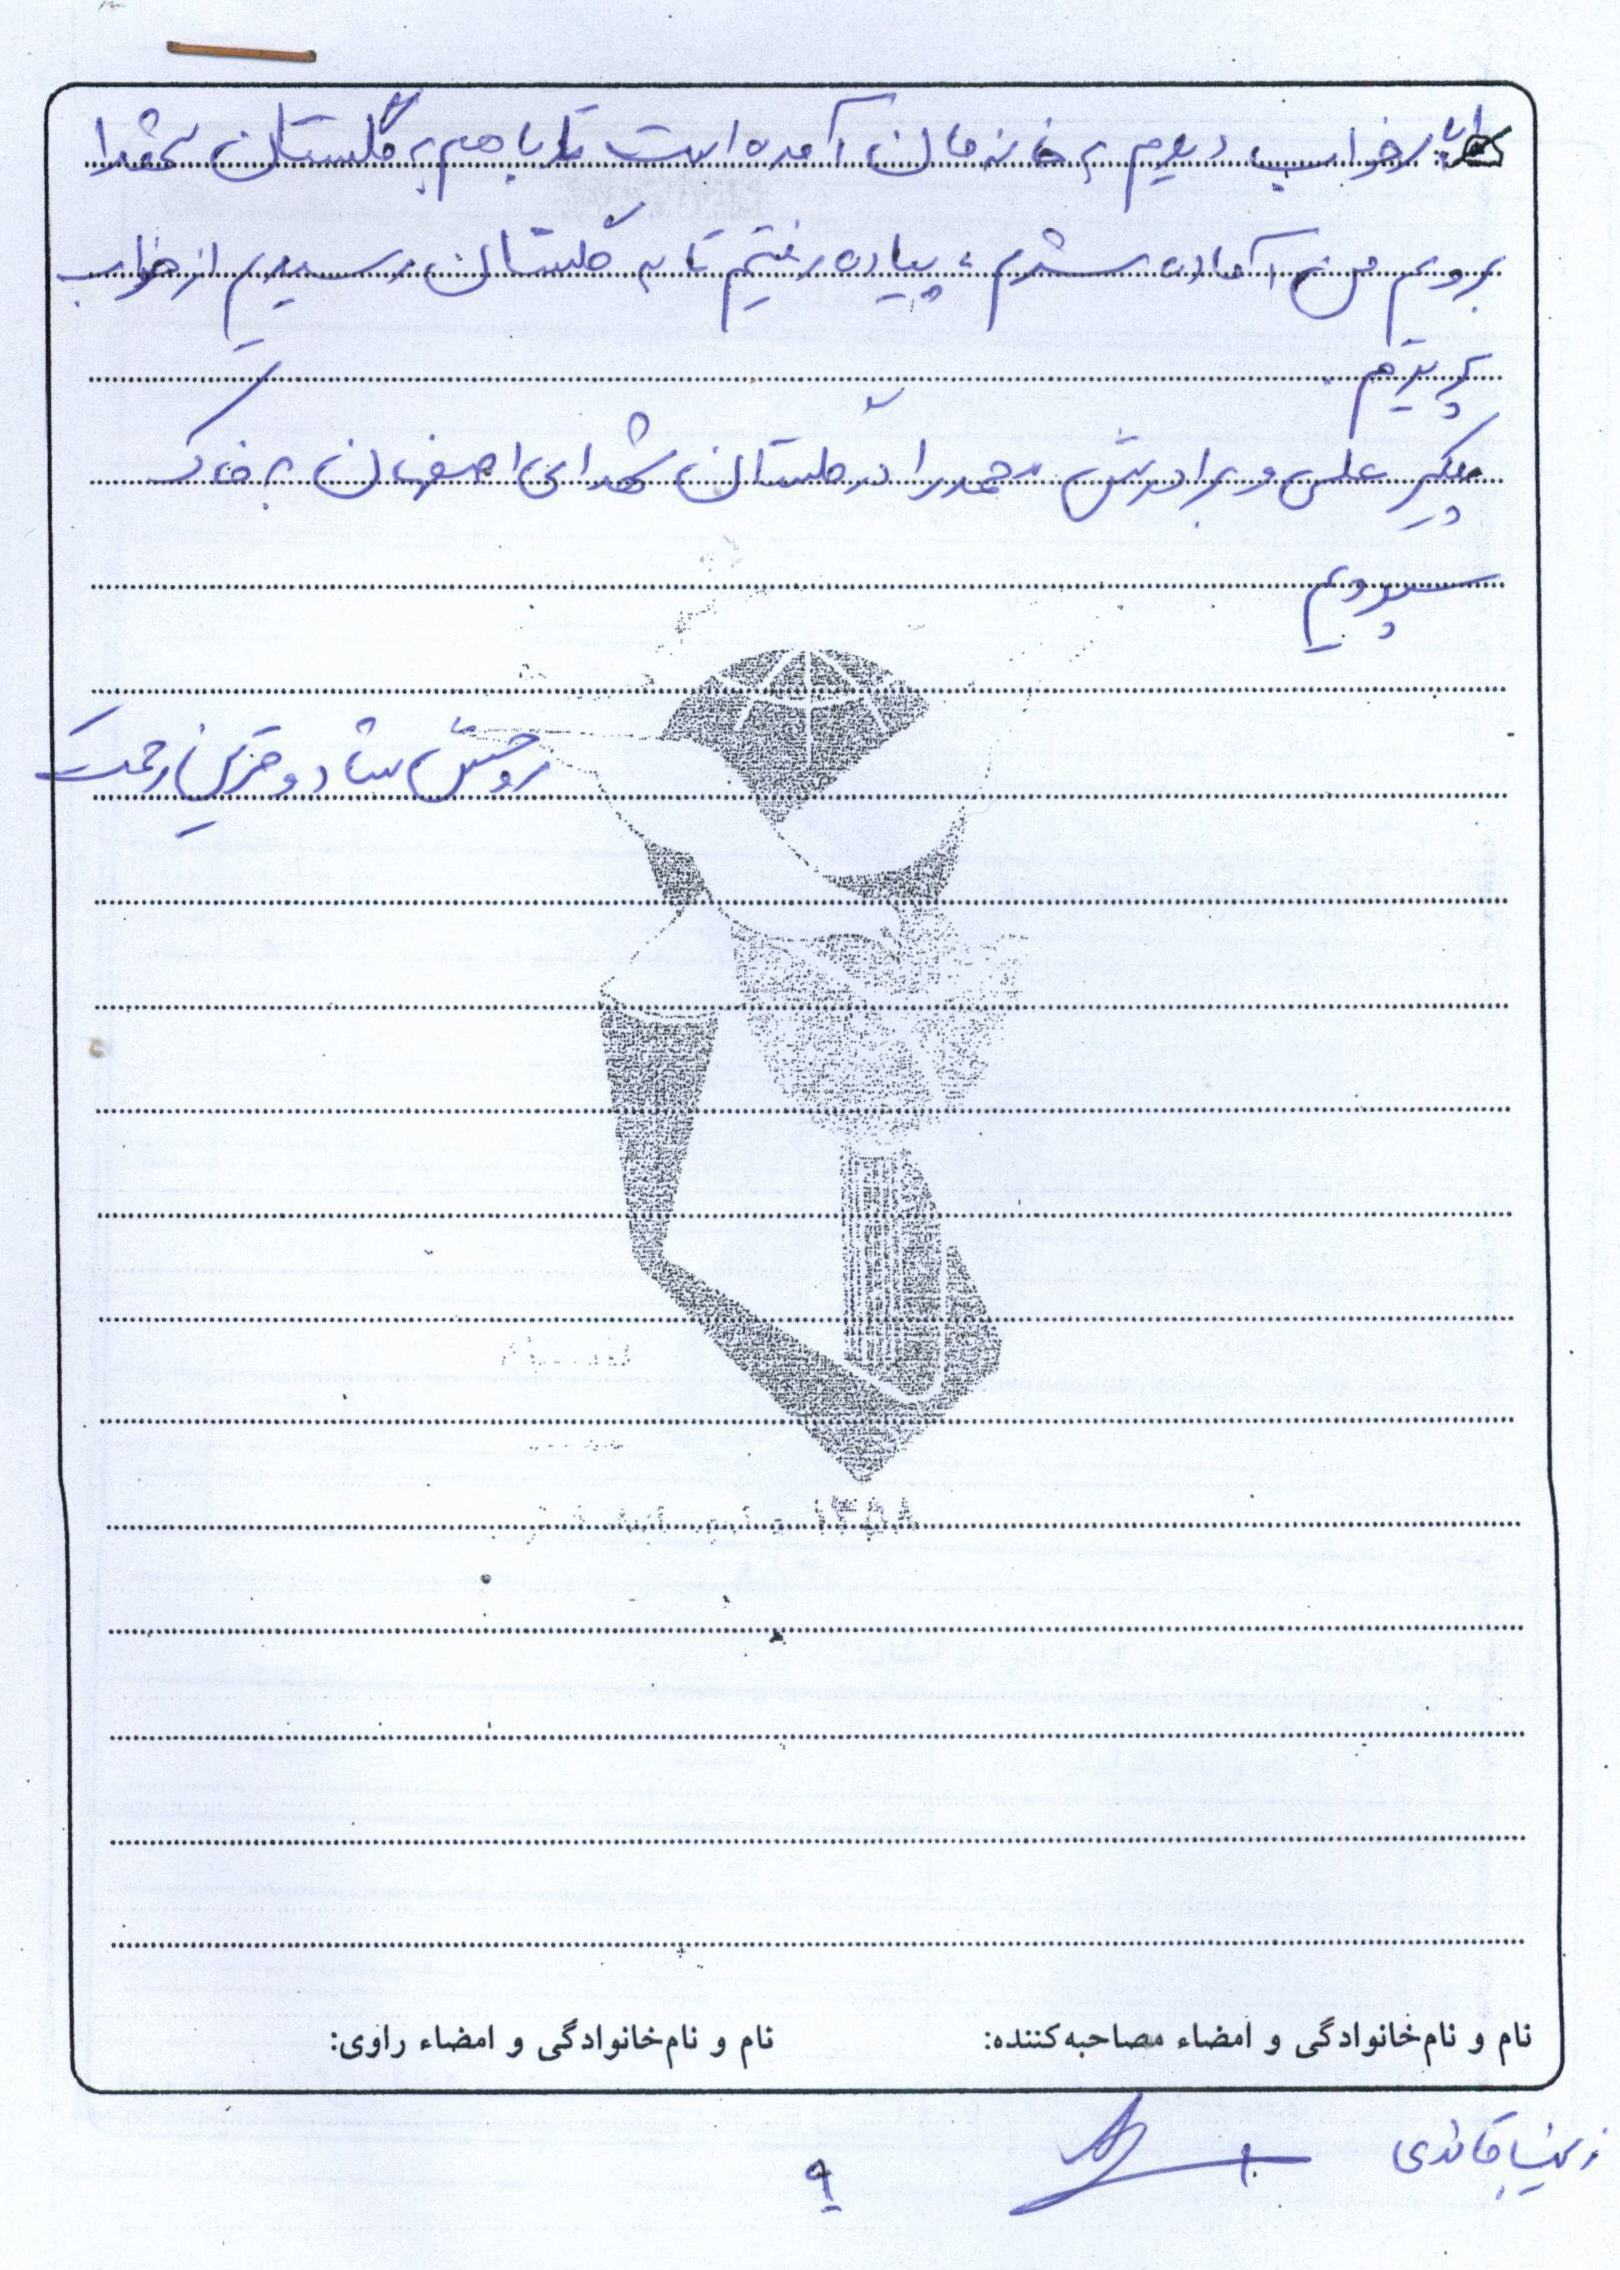 را در خواب دیدم به خانه مان آمده است تا با هم به گلستان شهدا
برویم من آماده شدم، پیاده رفتیم تا به گلستان رسیدیم از خواب
پریدم.
پیکر علی و برادرش محمد را در گلستان شهدای اصفهان به خاک
سپردیم
روحش شاد و قرین رحمت
۱۳۵۸
نام و نام‌خانوادگی و امضاء مصاحبه‌کننده:
نام و نام‌خانوادگی و امضاء راوی:
زینب قائدی
۹